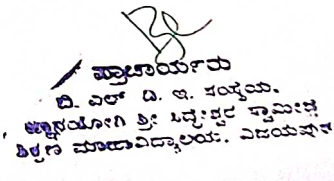 ಪ್ರಾಚಾರ್ಯರು
ಬಿ. ಎಲ್ ಡಿ. ಇ. ಸಂಸ್ಥೆಯ,
ಜ್ಞಾನಯೋಗಿ ಶ್ರೀ ಸಿದ್ದೇಶ್ವರ ಸ್ವಾಮೀಜಿ
ಶಿಕ್ಷಣ ಮಹಾವಿದ್ಯಾಲಯ. ವಿಜಯಪುರ